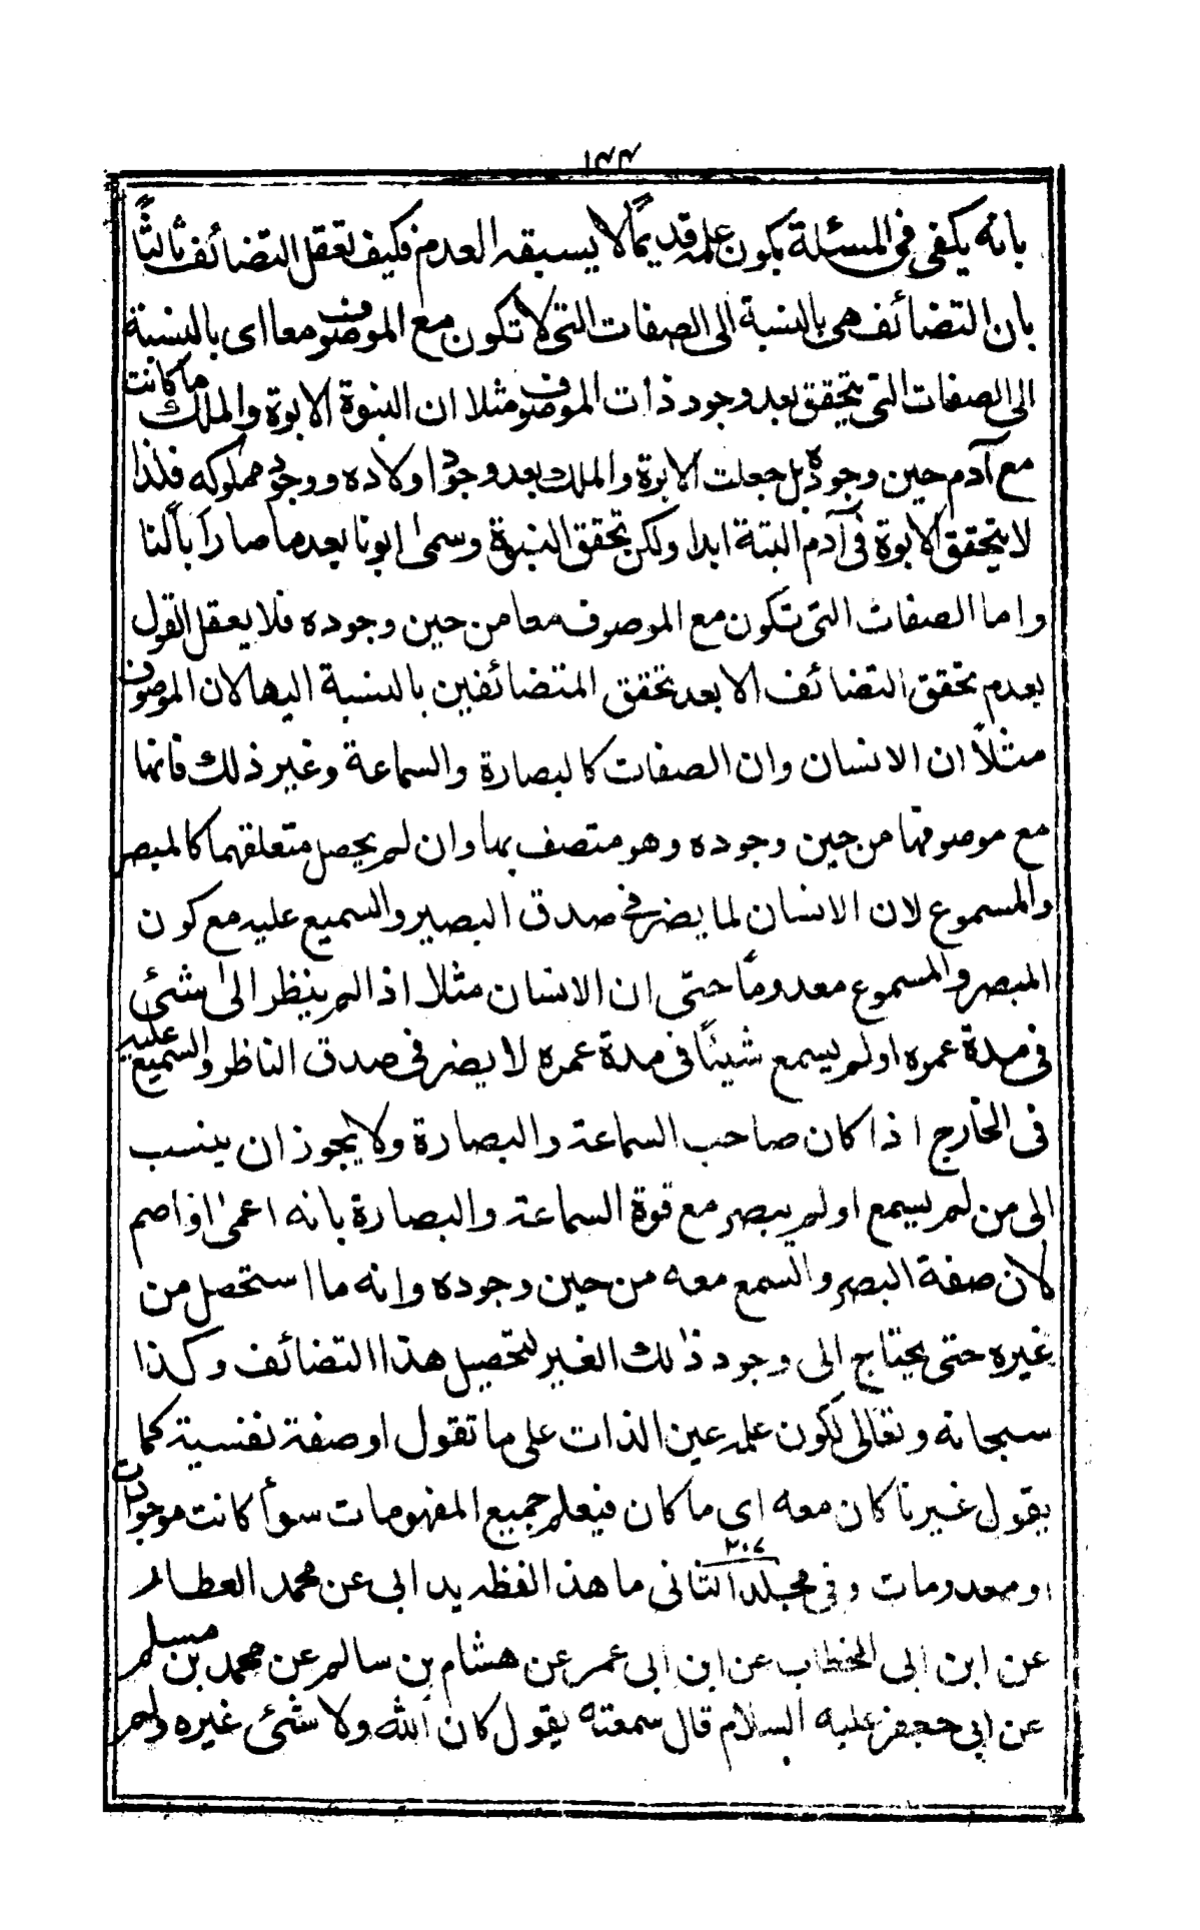 ١٤٤
بانه يكفى فى المسئلة بكون علمه قديمًا لا يسبقه العدم فكيف تعقل التضائف ثالثًا
بان التضائف هى بالنسبة الى الصفات التى لا تكون مع الموصوف معا اى بالنسبة
الى الصفات التى يتحقق بعد وجود ذات الموصوف مثلا ان البنوة الابوة والملك ما كانت
مع آدم حين وجوده بل جعلت الابوة والملك بعد وجود اولاده ووجود مملوكه فلذا
لا يتحقق الابوة فى آدم البتة ابدا ولكن تحقق البنوة وسمى ابونا بعد ما صار ابًا لنا
واما الصفات التى تكون مع الموصوف معا من حين وجوده فلا يعقل القول
بعدم تحقق التضائف الا بعد تحقق المتضائفين بالنسبة اليها لان الموصوف
مثلاً ان الانسان وان الصفات كالبصارة والسماعة وغير ذلك فانها
مع موصوفها من حين وجوده وهو متصف بها وان لم يحصل متعلقهما كالمبصر
والمسموع لان الانسان لما يضر فى صدق البصير والسميع عليه مع كون
المبصر والمسموع معدومًا حتى ان الانسان مثلا اذا لم ينظر الى شئ
فى مدة عمره او لم يسمع شيئًا فى مدة عمره لا يضر فى صدق الناظر والسميع عليه
فى الخارج اذا كان صاحب السماعة والبصارة ولا يجوز ان ينسب
الى من لم يسمع او لم يبصر مع قوة السماعة والبصارة بانه اعمى او اصم
لان صفة البصر والسمع معه من حين وجوده وانه ما استحصل من
غيره حتى يحتاج الى وجود ذلك الغير لتحصيل هذا التضائف وكذا
سبحانه وتعالى لكون علمه عين الذات على ما تقول او صفة نفسية كما
يقول غيرنا كان معه اى ما كان فيعلم جميع المفهومات سوأ كانت موجودات
او معدومات وفى مجلد الثانى ٢٠٧ ما هذا لفظه يد ابى عن محمد العطار
عن ابن ابى الخطاب عن ابن ابى عمر عن هشام بن سالم عن محمد بن مسلم
عن ابى جعفر عليه السلام قال سمعته يقول كان الله ولا شئ غيره ولم